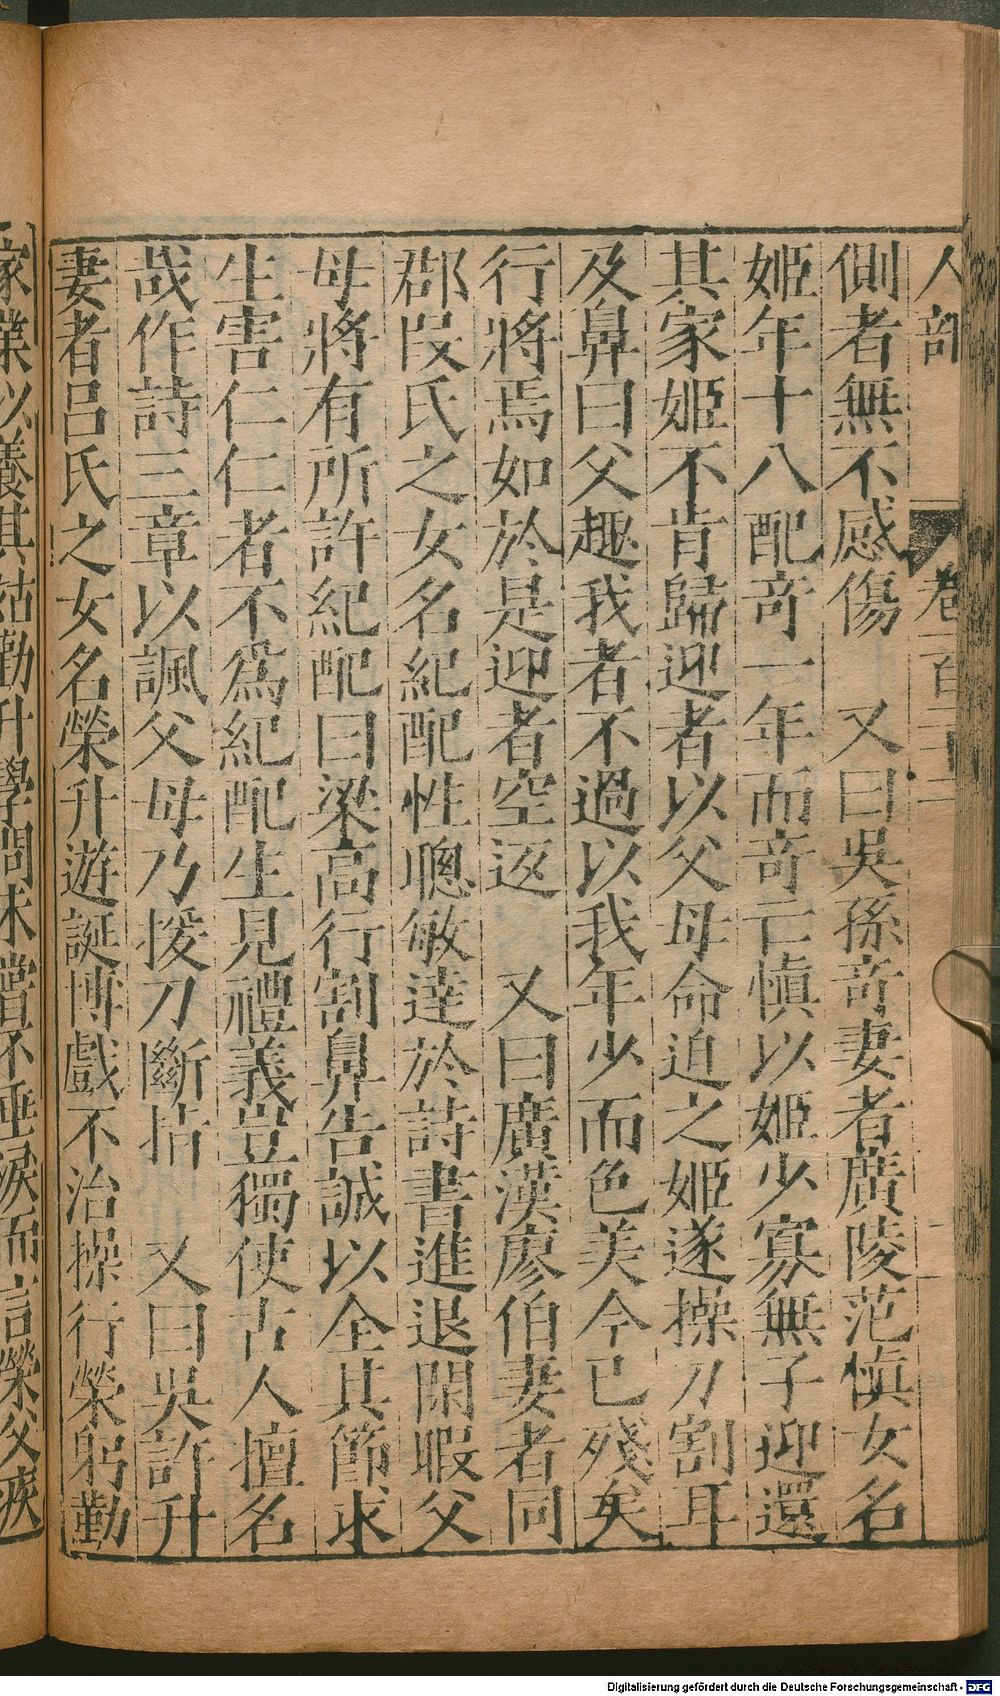 人部 卷一百三十二
側者無不感傷　又曰吳孫奇妻者廣陵范愼女名
姬年十八配奇一年而奇亡愼以姬少寡無子迎還
其家姬不肯歸迎者以父母命迫之姬遂操刀割耳
及鼻曰父趣我者不過以我年少而色美今已殘矣
行將焉如於是迎者空返　又曰廣漢廖伯妻者同
郡叚氏之女名紀配性聰敏達於詩書進退閑暇父
母將有所許紀配曰梁高行割鼻告誠以全其節求
生害仁仁者不爲紀配生見禮義豈獨使古人擅名
哉作詩三章以諷父母乃援刀斷指　又曰吳許升
妻者呂氏之女名榮升遊誕博戲不治操行榮躬勤
家業以養其姑勸升學問未嘗不垂淚而言榮父疾
Digitalisierung gefördert durch die Deutsche Forschungsgemeinschaft - DFG